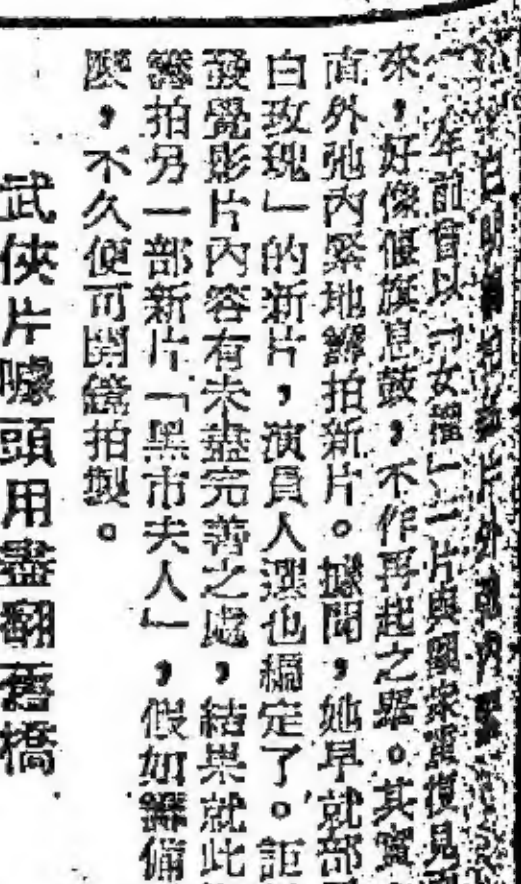 白明 拍 片外弛內緊
年前曾以「女權」一片與觀眾重復見
來,好像偃旗息鼓,不作再起之畧。其實
直外弛內緊地籌拍新片。據聞,她早就部
白玫瑰」的新片,演員人選也編定了。詎
發覺影片內容有未盡完善之處,結果就此
籌拍另一部新片「黑市夫人」,假如籌備
麼,不久便可開鏡拍製。
武俠片噱頭用盡翻舊橋